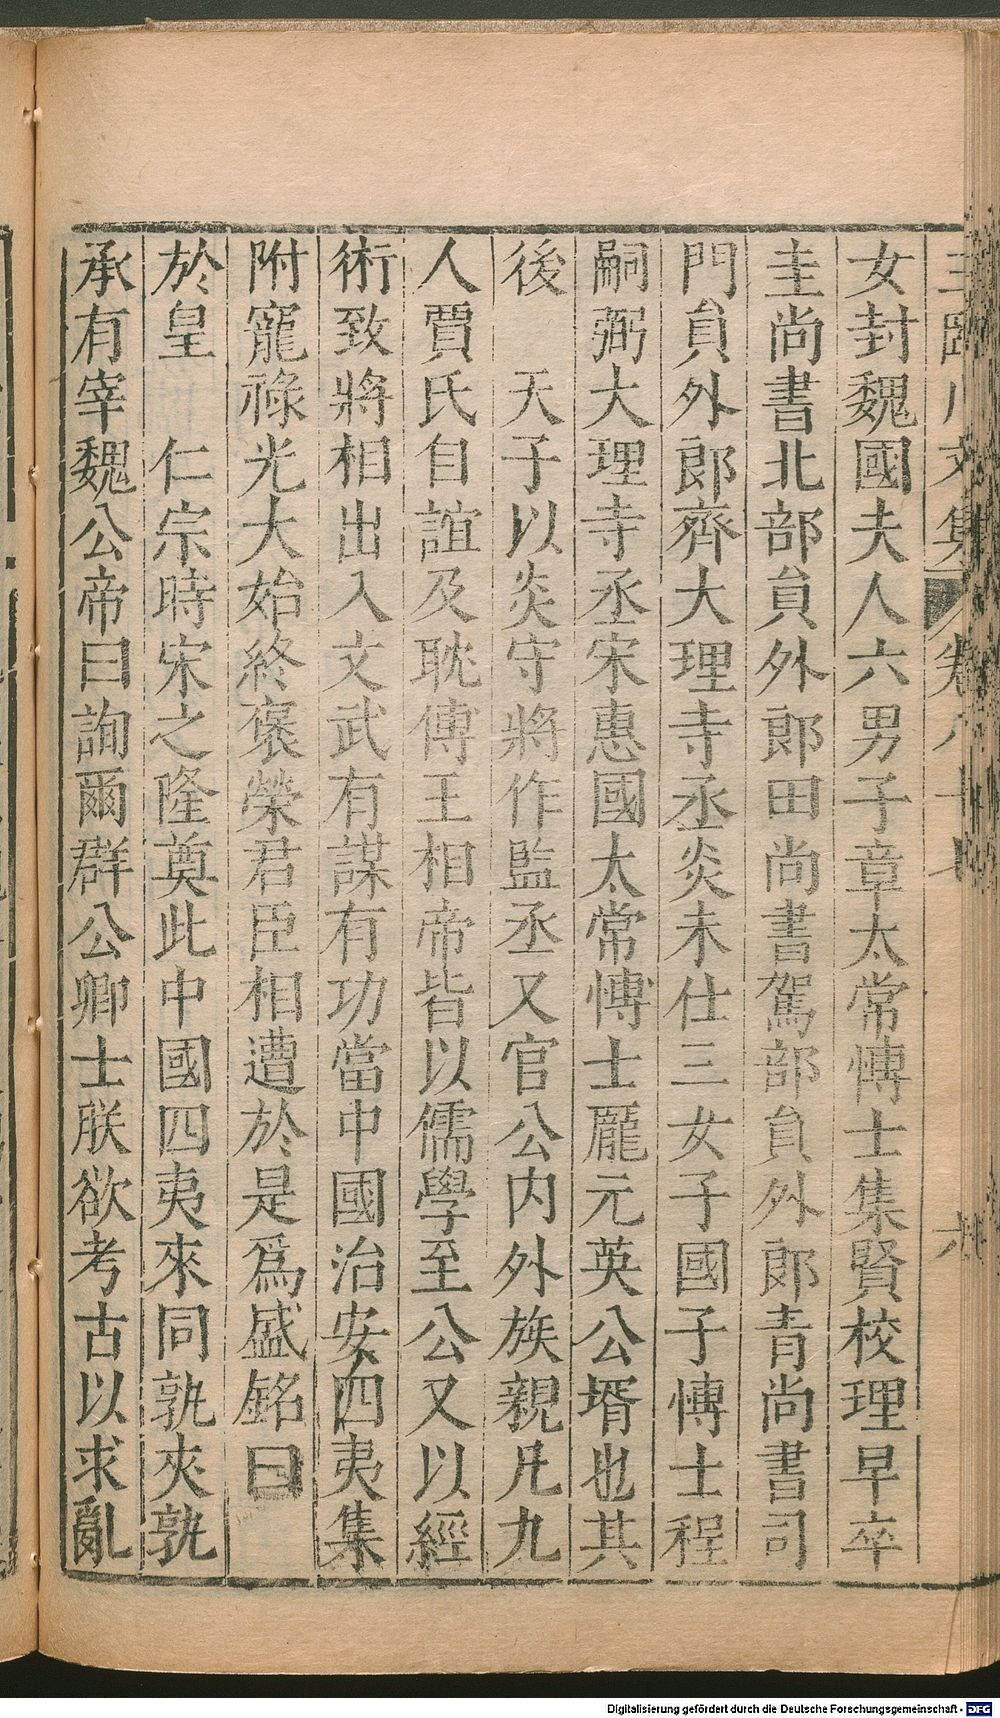 王臨川文集 卷八十七 六
女封魏國夫人六男子章太常愽士集賢校理早卒
圭尚書北部貟外郎田尚書駕部貟外郎青尚書司
門貟外郎齊大理寺丞炎未仕三女子國子愽士程
嗣弼大理寺丞宋惠國太常愽士龎元英公壻也其
後　天子以炎守將作監丞又官公内外族親凡九
人賈氏自誼及耽傅王相帝皆以儒學至公又以經
術致將相出入文武有謀有功當中國治安四夷集
附寵祿光大始終褒榮君臣相遭於是爲盛銘曰
於皇　仁宗時宋之隆奠此中國四夷來同孰夾孰
承有宰魏公帝曰詢爾群公卿士朕欲考古以求亂
Digitalisierung gefördert durch die Deutsche Forschungsgemeinschaft - DFG